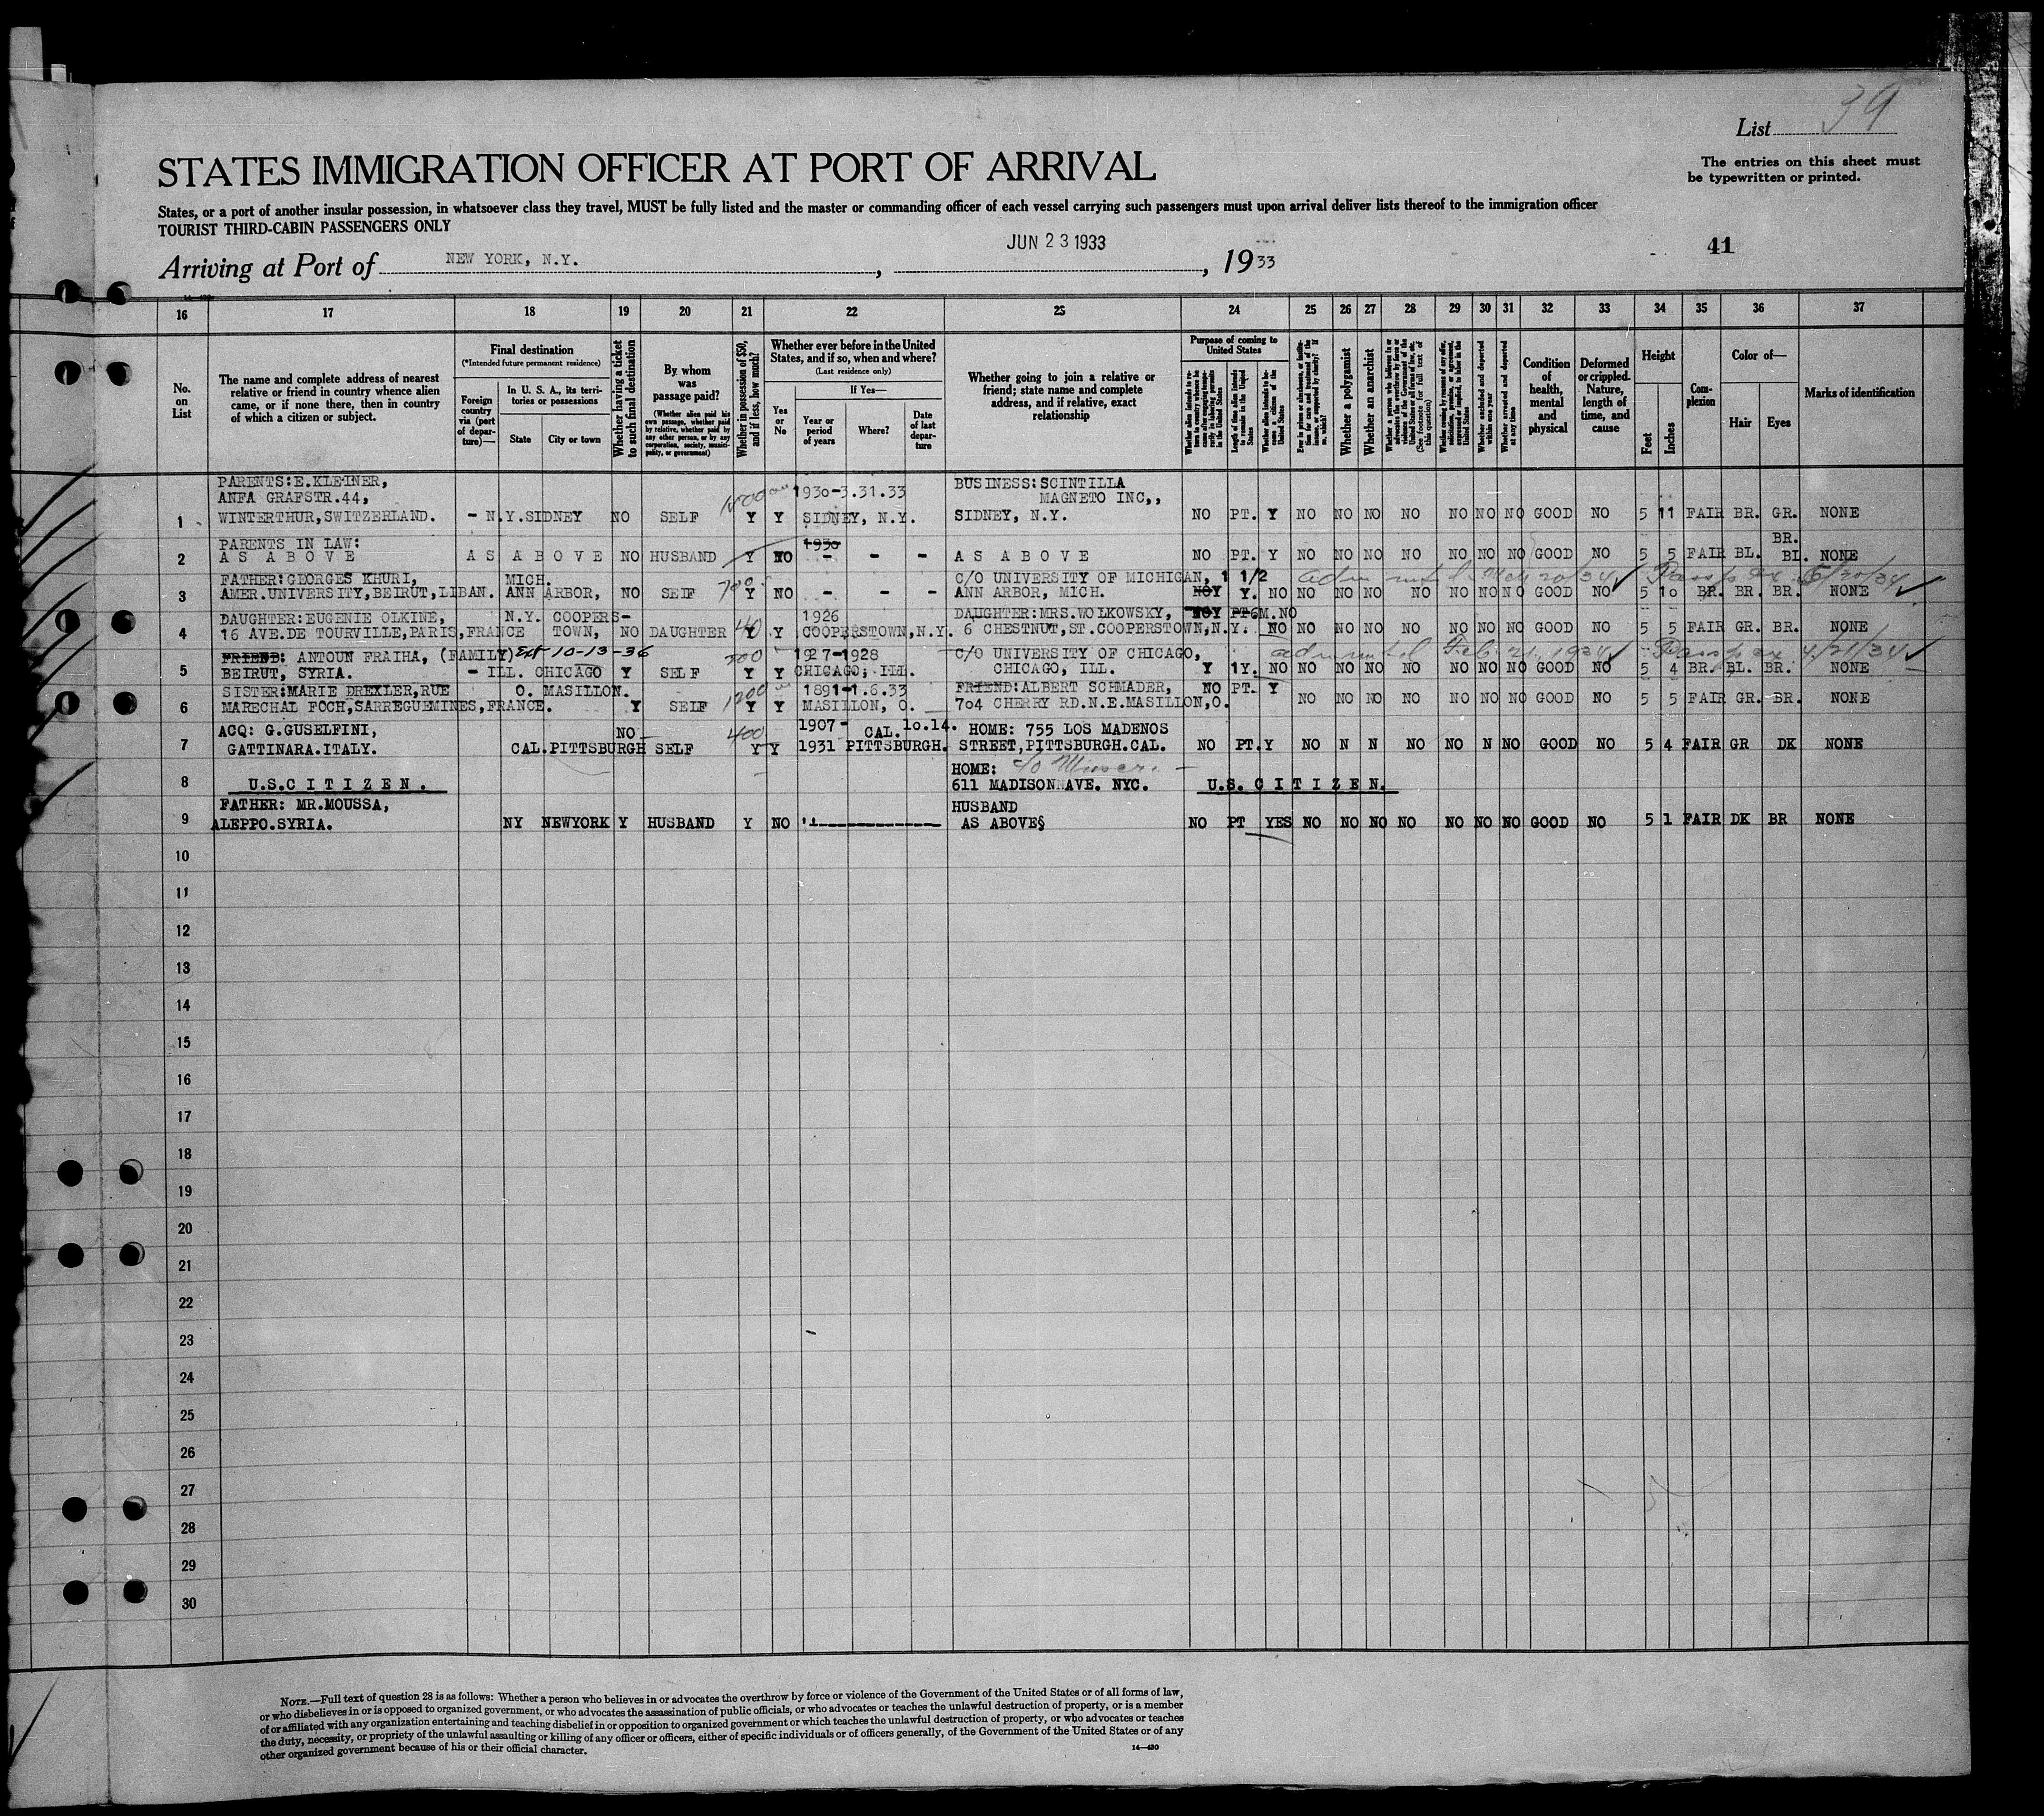 List 39
STATES IMMIGRATION OFFICER AT PORT OF ARRIVAL
The entries on this sheet must
be typewritten or printed.
States, or a port of another insular possession, in whatsoever class they travel, MUST be fully listed and the master or commanding officer of each vessel carrying such passengers must upon arrival deliver lists thereof to the immigration officer
TOURIST THIRD-CABIN PASSENGERS ONLY
Arriving at Port of NEW YORK, N.Y., JUN 23 1933, 1933
41
16 17 18 19 20 21 22 23 24 25 26 27 28 29 30 31 32 33 34 35 36 37
No. on List
The name and complete address of nearest
relative or friend in country whence alien
came, or if none there, then in country
of which a citizen or subject.
Final destination
(*Intended future permanent residence)
Foreign country via (port of departure)—
In U. S. A., its territories or possessions
State
City or town
Whether having a ticket to such final destination
By whom was passage paid?
(Whether alien paid his own passage, whether paid by relative, whether paid by any other person, or by any corporation, society, municipality, or government)
Whether in possession of $50, and if less, how much?
Whether ever before in the United
States, and if so, when and where?
(Last residence only)
Yes or No
If Yes—
Year or period of years
Where?
Date of last departure
Whether going to join a relative or
friend; state name and complete
address, and if relative, exact
relationship
Purpose of coming to United States
Length of time alien intends to remain in the United States
Whether alien intends to become a citizen of the United States
Whether a polygamist
Whether an anarchist
(See footnote for full text of this question)
Whether excluded and deported within one year
Whether arrested and deported at any time
Condition of health, mental and physical
Deformed or crippled. Nature, length of time, and cause
Height
Feet
Inches
Complexion
Color of—
Hair
Eyes
Marks of identification
PARENTS:E.KLEINER,
ANFA GRAFSTR.44, 1930-3.31.33 BUSINESS:SCINTILLA
MAGNETO INC,,
1 WINTERTHUR,SWITZERLAND. - N.Y.SIDNEY NO SELF Y Y SIDNEY, N.Y. SIDNEY, N.Y. NO PT. Y NO NO NO NO NO NO NO GOOD NO 5 11 FAIR BR. GR. NONE
PARENTS IN LAW: 1930 BR.
2 AS ABOVE AS ABOVE NO HUSBAND Y NO - - - AS ABOVE NO PT. Y NO NO NO NO NO NO NO GOOD NO 5 5 FAIR BL. BL. NONE
FATHER:GEORGES KHURI, MICH. 700 C/O UNIVERSITY OF MICHIGAN, 1 1/2 Pass ex 5/20/34
3 AMER.UNIVERSITY,BEIRUT,LIBAN. ANN ARBOR, NO SELF Y NO - - - ANN ARBOR, MICH. NOY Y. NO NO NO NO NO NO NO NO GOOD NO 5 10 BR. BR. BR. NONE
DAUGHTER:EUGENIE OLKINE, N.Y. COOPERS- 40 1926 DAUGHTER:MRS.WOLKOWSKY, NOY PT6M.NO
4 16 AVE.DE TOURVILLE,PARIS,FRANCE TOWN, NO DAUGHTER Y Y COOPERSTOWN,N.Y. 6 CHESTNUT,ST.COOPERSTOWN,N.Y. NO NO NO NO NO NO NO NO GOOD NO 5 5 FAIR GR. BR. NONE
FRIEND: ANTOUN FRAIHA, (FAMILY) Ext 10-13-36 500 1927-1928 C/O UNIVERSITY OF CHICAGO, admitted Feb 21, 1934 Pass ex 4/21/34
5 BEIRUT, SYRIA. - ILL. CHICAGO Y SELF Y Y CHICAGO, ILL. CHICAGO, ILL. Y 1Y. NO NO NO NO NO NO NO NO GOOD NO 5 4 BR. BL. BR. NONE
SISTER:MARIE DREXLER,RUE O. MASILLON. 1200 1891-1.6.33 FRIEND:ALBERT SCHMADER, NO PT. Y
6 MARECHAL FOCH,SARREGUEMINES,FRANCE. Y SELF Y Y MASILLON, O. 704 CHERRY RD.N.E.MASILLON,O. NO NO NO NO NO NO NO GOOD NO 5 5 FAIR GR. BR. NONE
ACQ: G.GUSELFINI, NO 400 1907- CAL. 10.14. HOME: 755 LOS MADENOS
7 GATTINARA.ITALY. CAL.PITTSBURGH SELF Y Y 1931 PITTSBURGH. STREET,PITTSBURGH.CAL. NO PT.Y NO N N NO NO N NO GOOD NO 5 4 FAIR GR DK NONE
HOME:
8 U.S.CITIZEN. 611 MADISON AVE. NYC. U.S. CITIZEN.
FATHER: MR.MOUSSA, HUSBAND
9 ALEPPO.SYRIA. NY NEWYORK Y HUSBAND Y NO AS ABOVE§ NO PT YES NO NO NO NO NO NO NO GOOD NO 5 1 FAIR DK BR NONE
10
11
12
13
14
15
16
17
18
19
20
21
22
23
24
25
26
27
28
29
30
NOTE.—Full text of question 28 is as follows: Whether a person who believes in or advocates the overthrow by force or violence of the Government of the United States or of all forms of law,
or who disbelieves in or is opposed to organized government, or who advocates the assassination of public officials, or who advocates or teaches the unlawful destruction of property, or is a member
of or affiliated with any organization entertaining and teaching disbelief in or opposition to organized government or which teaches the unlawful destruction of property, or who advocates or teaches
the duty, necessity, or propriety of the unlawful assaulting or killing of any officer or officers, either of specific individuals or of officers generally, of the Government of the United States or of any
other organized government because of his or their official character.
14—430